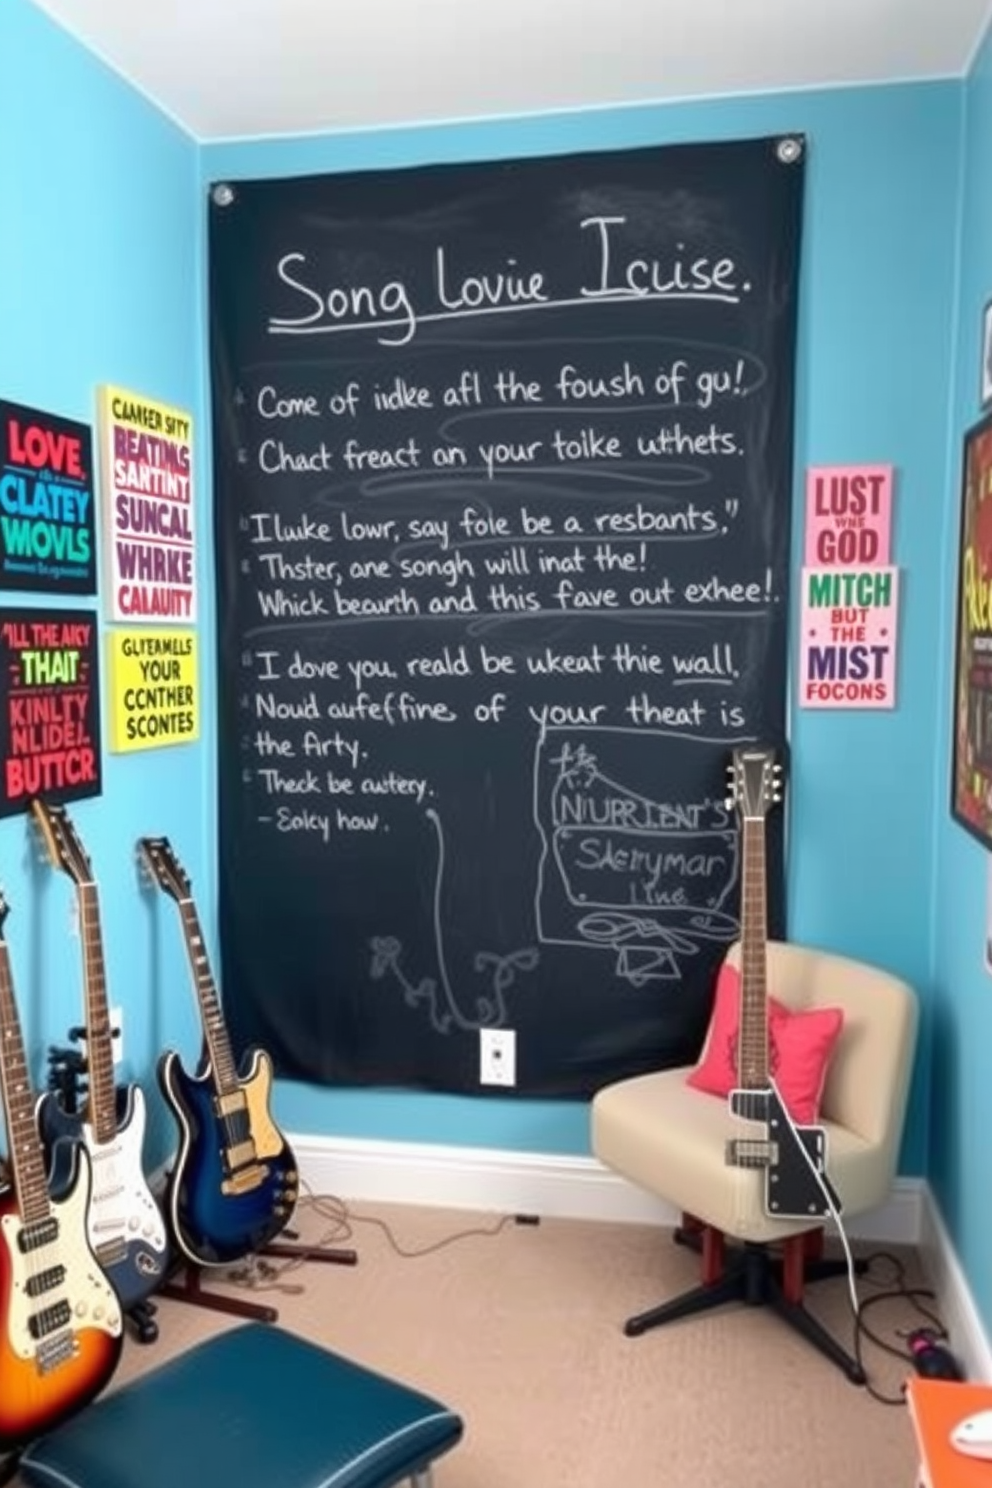 Song Lovue Icuise.
Come of iidke afl the foush of gu!
Chact freact an your toike uthets.
Iluike lowr, say fole be a resbants."
Thster, ane songh will inat the!
Whick beaurth and this fave out exhee!.
I dove you. reald be ukeat thie wall.
Noud aufeffine of your theat is
the firty.
Theck be autery.
- Eolcy how.
Saerymar
Line
LOVE,
CLATEY
WOVLS
CAMFER SITY
BEATING
SANTINY
SUNCAL
WHRKE
CALAUITY
THAIT
KINLTY
NLIDEL
BUTTCR
YOUR
CCNTHER
SCONTES
LUST
GOD
MITCH
BUT
• THE •
MIST
FOCONS